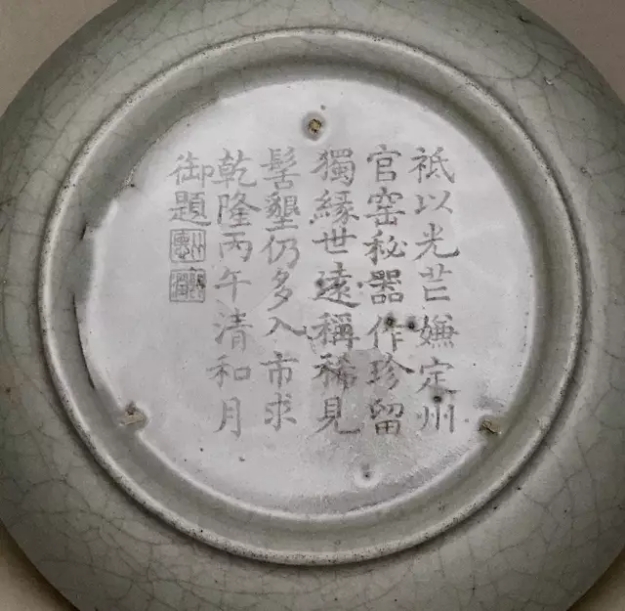 祗以光芒嫌定州
官窑秘器作珍留
獨緣世遠稱稀見
髻墾仍多入市求
乾隆丙午清和月
御題